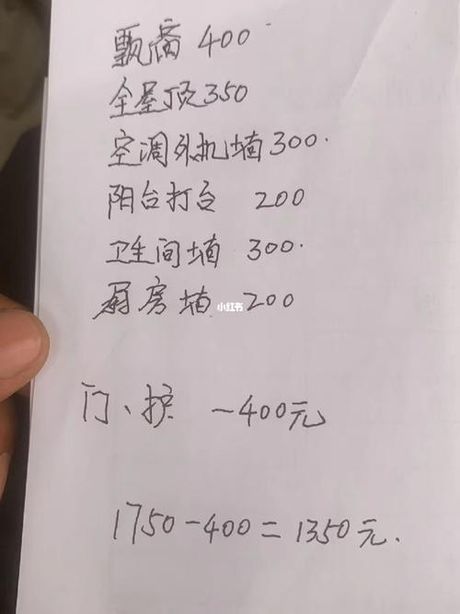 飘窗 400
全屋顶 350
空调外机墙 300.
阳台打台 200
卫生间墙 300.
厨房墙 200
小红书
门、护 -400元
1750-400=1350元.